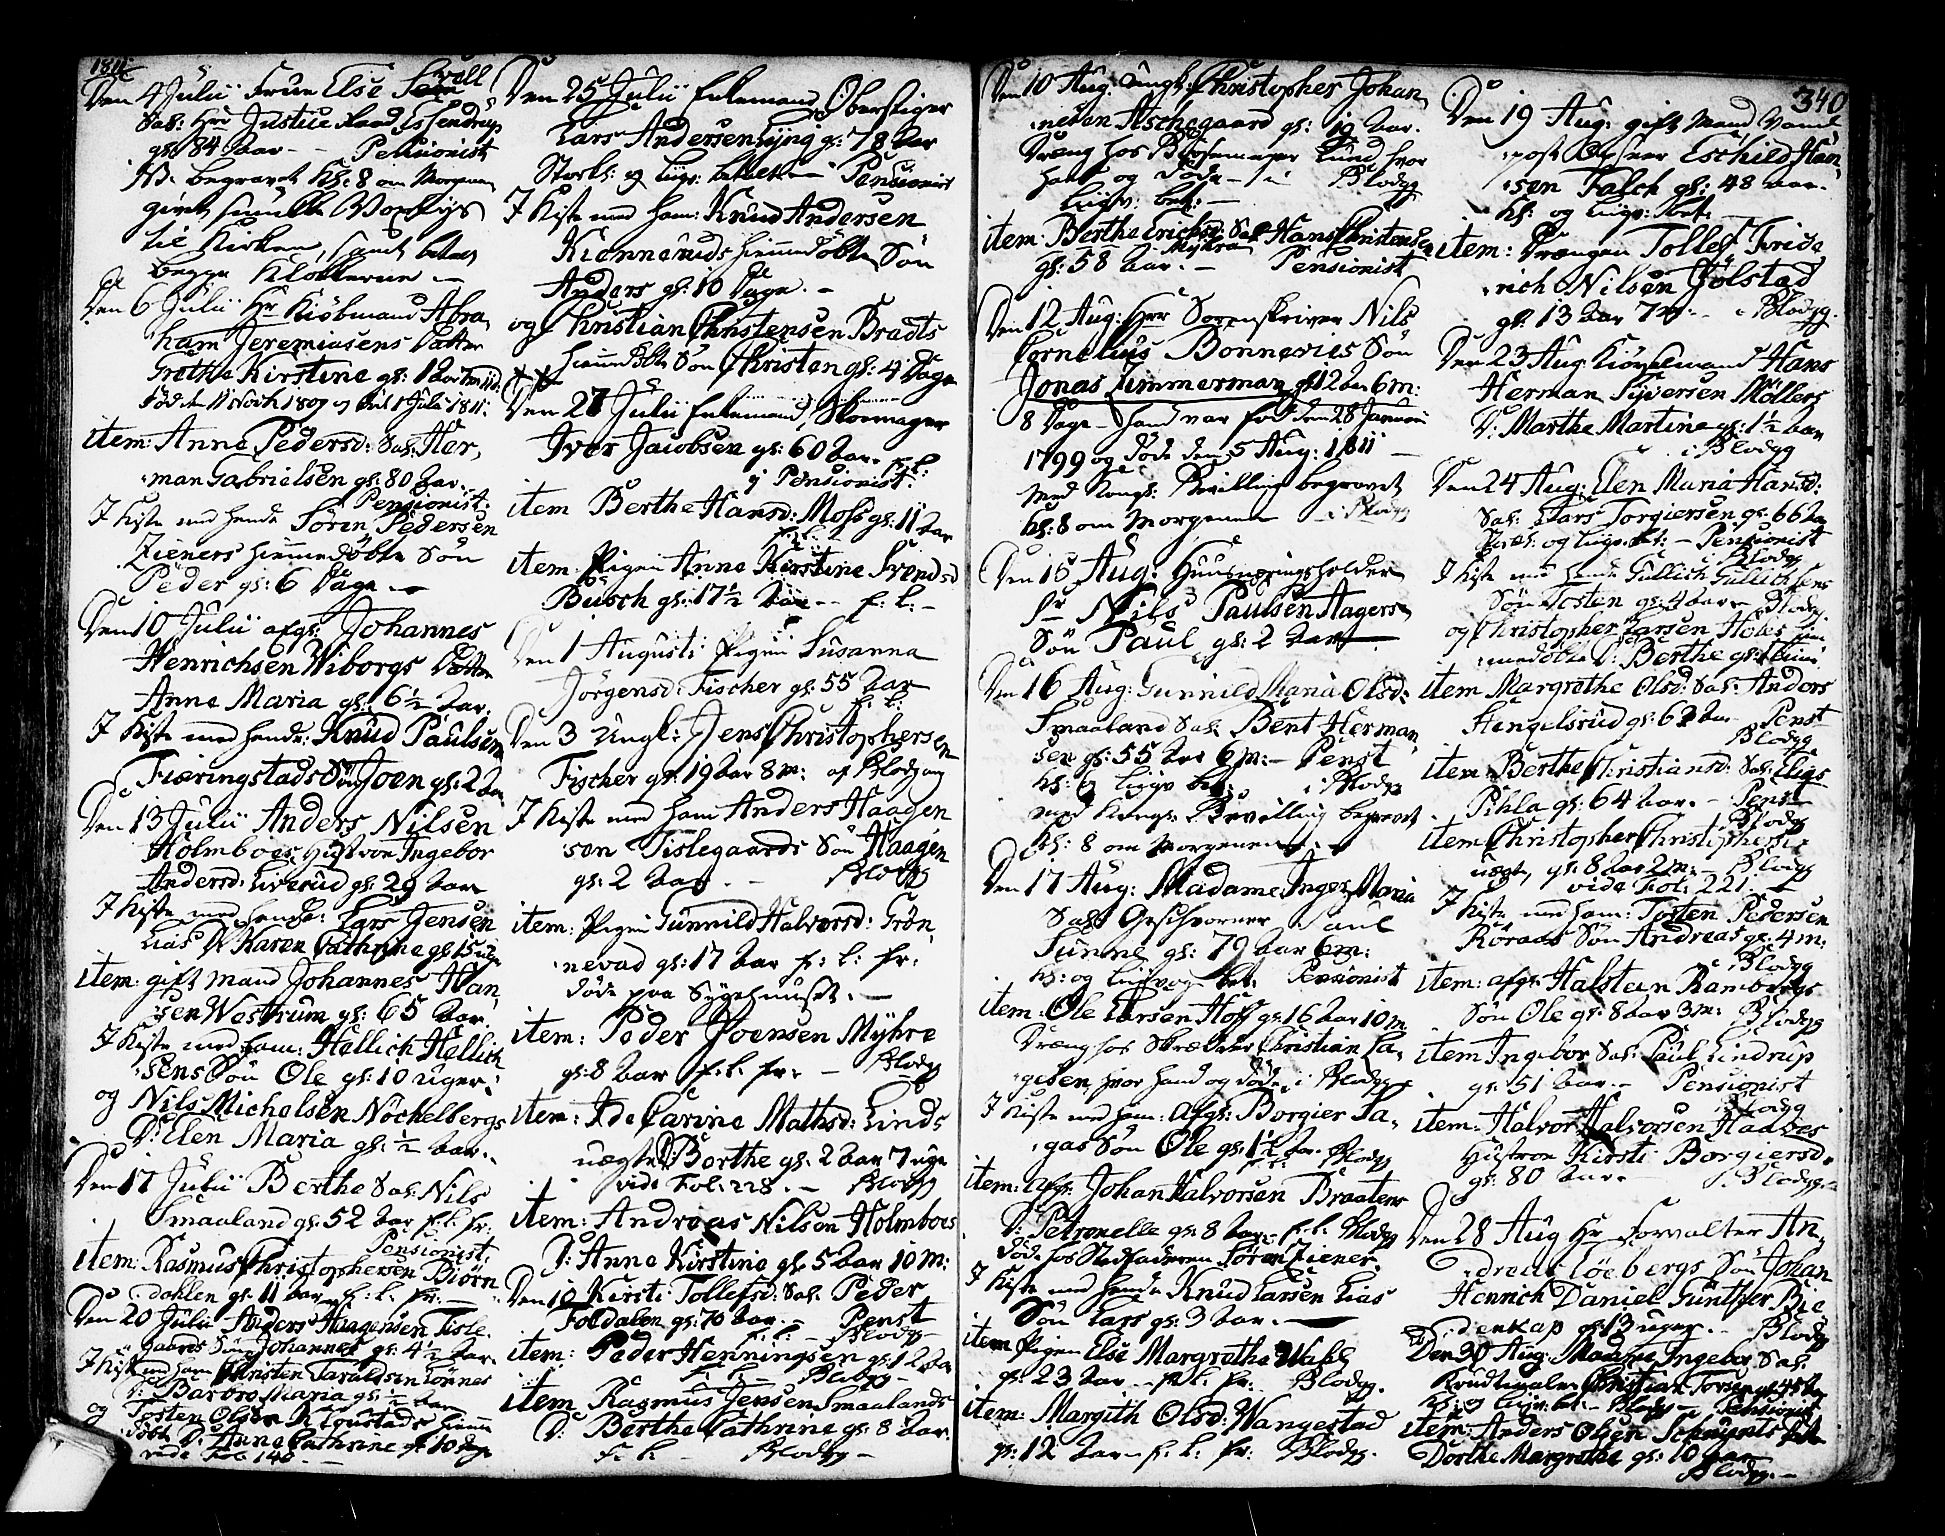 1811.
Den 4 Julii Frue Else
Sal: Hrr Justice Raad Essendrops
gl: 84 Aar - Pensionist
begravet Kl: 8 om Morgenen
givet smukke Voxlys
til Kirken, samt betalt
begge Klokkerne -
Den 6 Julii Hr Kiöbmand Abra,
ham Jeremiasens Datter
Grethe Kirstine gl: 1 Aar
Födt den 11 Novb 1809 og död 1 Julii 1811.
item: Anne Pedersd: Sal: Her,
man Gabrielsen gl: 80 Aar.
Pensionist:
I Kiste med hende Sören Pedersen
Zieners hiemmedöbte Sön
Peder gl: 6 Dage -
Den 10 Julii afgl: Johannes
Henrichsen Wiborgs Datter
Anne Maria gl: 6½ Aar.
I Kiste med hende: Knud Paulsen
Fiæringstads Sön Joen gl: 2 Aar
Den 13 Julii Anders Nilsen
Holmboes Hustroe Ingebor
Andersd: Liverud gl: 29 Aar
I Kiste med hende: Lars Jensen
Lias D: Karen Cathrine gl: 15 uger
item: gift mand Johannes Han,
sen Wastrum gl: 65 Aar.
I Kiste med ham: Hellich Hellich
sens Sön Ole gl: 10 uger.
og Nils Michelsen Nöchelbergs
D: Elen Maria gl: ½ Aar.
Den 17 Julii Berthe Sal: Nils
Smaaland gl: 52 Aar f: l: fr:
Pensionist.
item: Rasmus Christophersen Biörn
dahlen gl: 11 Aar f: l: fr: -
Den 20 Julii Anders Haagensen Tisle,
gaards Sön Johannes gl: 4½ Aar.
I Kiste med ham Christen Taraldsen
D: Barbro Maria gl: ½ Aar
og Tosten Olsen hiemm
döbte D: Anne Cathrine gl: 10 Dage
vide Fol: 140 -
Den 25 Julii Enkemand Oberstiger
Lars Andersen Lyng gl: 78 Aar
Storkl: og Ligv: betalt - Pensionist
I Kiste med ham: Knud Andersen
Kienneruds hiemmedöbte Sön
Anders gl: 10 Dage. -
og Christian Christensen Bradts
hiemmedöbte Sön Christen gl: 4 Dage
Den 27 Julii Enkemand, Skomager
Iver Jacobsen gl: 60 Aar. f: l:
Pensionist.
item Berthe Hansd: Moss gl: 11 Aar
f: l:
item: Pigen Anne Kirstine Svendsd
Busch gl: 17½ Aar - f: l: -
Den 1 Augusti Pigen Susanna
Jörgensd: Fischer gl: 55 Aar
f: l:
Den 3 Ungk: Jens Christophersen
Fischer gl: 19 Aar 8 m: af Blodgang
I Kiste med ham Anders Haagen
sen Tislegaards Sön Haagen
gl: 2 Aar. - Blodgg
item: Pigen Gunnild Halvorsd: Grön,
nevad gl: 17 Aar f: l: fr:
döde paa Sygehuuset. -
item: Peder Joensen Myhre
gl: 8 Aar f: l: fr: - Blodgg
item: Ide Carine Mathsd: Linds
uægte D: Berthe gl: 2 Aar 7 uger
vide Fol: 228. - Blodgg
item: Andreas Nilsen Holmboes
D: Anne Kirstine gl: 5 Aar 10 m:
Den 10 Kirsti Tollefsd: Sal: Peder
Foldalen gl: 70 Aar. - Penst
f: l: - Blodgg -
item: Peder Henningsen gl: 12 Aar
f: l: - Blodgg -
item Rasmus Jensen Smaalands
D: Berthe Cathrine gl: 8 Aar.
f: l: Blodgg -
Den 10 Aug: Ungk: Christopher Johan,
nesen Aschegaard gl: 19 Aar.
Dreng hos Bössemager Lund, hvor
hand og döde - i Blodgg
Ligv: bet: -
item: Berthe Erichsd: Sal: Hans Christensen
Myhra
gl: 58 Aar. - Pensionist
Den 12 Aug: Herr Sorenskriver Nils
Cornelius Bonnevies Sön
Jonas Limmerman gl: 12 Aar 6 m:
8 Dage - hand var föd den 28 Januarii
1799 og döde den 5 Aug: 1811 -
med Kongl: Bevilling begravet
Kl: 8 om Morgenen - i Blodgg
Den 15 Aug: Huusnæringsholder
Sr Nils Paulsen Hagers
Sön Paul gl: 2 Aar
Den 16 Aug: Gunnild Maria Olsd:
Smaaland Sal: Bent Herman,
sen gl: 55 Aar 6 m: - Penst
Kl: og Ligv bet: i Blodgg
med Kongl: Bevilling begravet
Kl: 8 om Morgenen. -
Den 17 Aug: Madame Inger Maria
Sal: Geschworner Paul
Tunne gl: 79 Aar 6 m:
Kl: og Ligvogn bet: Pensionist
item: Ole Larsen Hoff gl: 16 Aar 10 m
Dreng hos Skræder Christian La,
gesen, hvor hand og döde, i Blodgg
I Kiste med ham: Afgl: Borgier La,
gas Sön Ole gl: 1½ Aar. Blodgg
item: Afgl: Johan Halvorsen Braatens
D: Petronelle gl: 8 Aar. f: l. Blodgg
döde hos Stedfaderen Sören Ziener.
I Kiste med hende Knud Larsen Lias
Sön Lars gl: 3 Aar. -
item Pigen Else Margrethe Wahl
gl: 23 Aar - f: l. fr: Blodgg.
item: Margith Olsd: Wangestad
gl: 12 Aar - f: l: fr: Blodgg.
340
Den 19 Aug: gift Mand Vand
post Opseer Eschild Han
sen Falch gl: 48 Aar.
Kl: og Ligv: bet.
item: Drengen Tollef Fride
rich Nilsen Jölstad
gl: 13 Aar 7 m. - i Blodgg.
Den 23 Aug. Kiörselmand Hans
Herman Syversen Möllers
D: Marthe Martine gl: 1½ Aar
i Blodgg
Den 24 Aug: Elen Maria Hansd:
Sal: Lars Torgiersen gl: 66 Aar
Kl: og Ligv: bet: - Pensionist
i Blodgg
I Kiste med hende Gullich Gullichsens
Sön Tosten gl: 4 Aar - Blodgg
og Christopher Larsen Holes hiem
medöbte D: Berthe gl: 1 time
item Margrethe Olsd: Sal: Anders
Hengelsrud gl: 62 Aar Penst
Blodgg
item: Berthe Christiansd: Sal: Elias
Pihla gl: 64 Aar. - Penst
Blodgg
item Christopher Christophers:
uægt, gl: 8 Aar 2 m: - Blodgg
vide Fol: 221. -
I Kiste med ham: Tosten Pedersen
Röraas Sön Andreas gl: 4 m:
i Blodgg
item: afgl: Halstein Rambergs
Sön Ole gl: 8 Aar 3 m: Blodgg
item Ingebor Sal: Paul Lindrup
gl: 51 Aar. - Pensionist
i Blodgg
item: Halvor Halvorsen Haaves
Hustroe Kirsti Borgiersd:
gl: 80 Aar. - i Blodgg. -
Den 28 Aug Hr Forvalter An,
dreas Löebergs Sön Johan
Henrich Daniel Günther Bie
denkap gl: 13 uger. - Blodgg
Den 30 Aug: Madme Ingebor Sal.
Christian gl: 45 Aar
Kl: og Ligv: bet - Blodgg - Pensionist
item: Anders Olsen
Dorthe Margrethe gl: 10 Aar
Blodgg. -